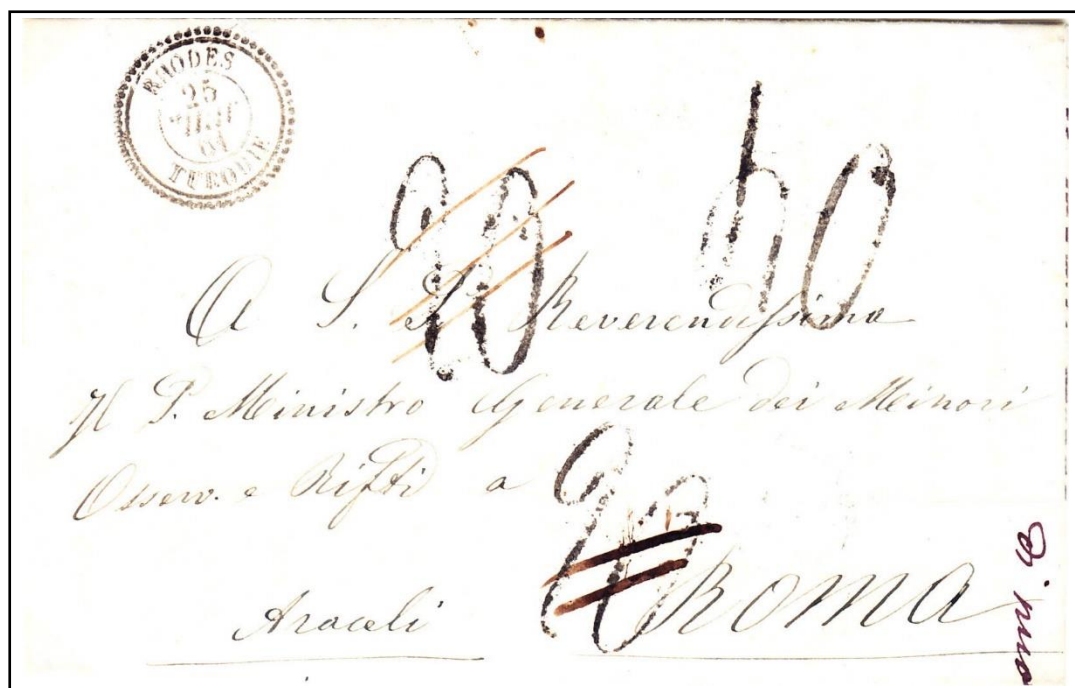 RHODES
25
TURQUIE
20
40
A S. P. Reverendissima
Il P. Ministro Generale dei Minori
Osserv. e Rifti a
20
Araceli ROMA